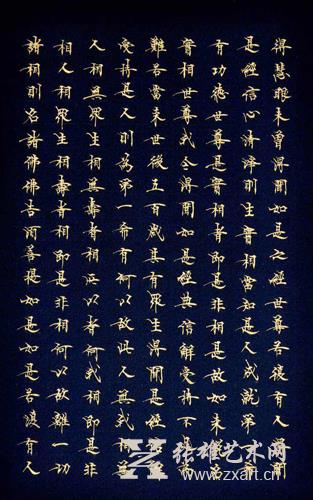 得慧眼未曾得聞如是之經世尊若復有人得聞
是經信心清淨則生實相當知是人成就第一希
有功德世尊是實相者即是非相是故如來名
實相世尊我今得聞如是經典信解受持不足
難若當來世後五百歲其有眾生得聞是經信
受持是人則為第一希有何以故此人無我相無
人相無眾生相無壽者相所以者何我相即是非
相人相眾生相壽者相即是非相何以故離一切
諸相則名諸佛佛告須菩提如是如是若復有人
张雄艺术网
www.zxart.cn